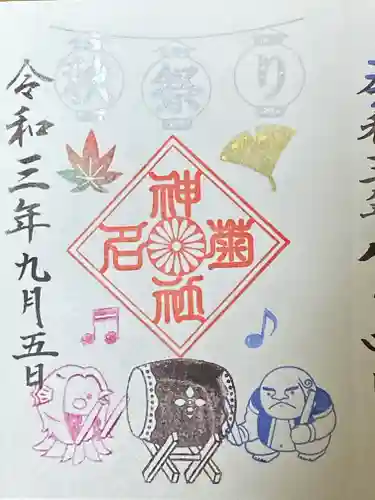 秋祭り
菊名神社
令和三年九月五日